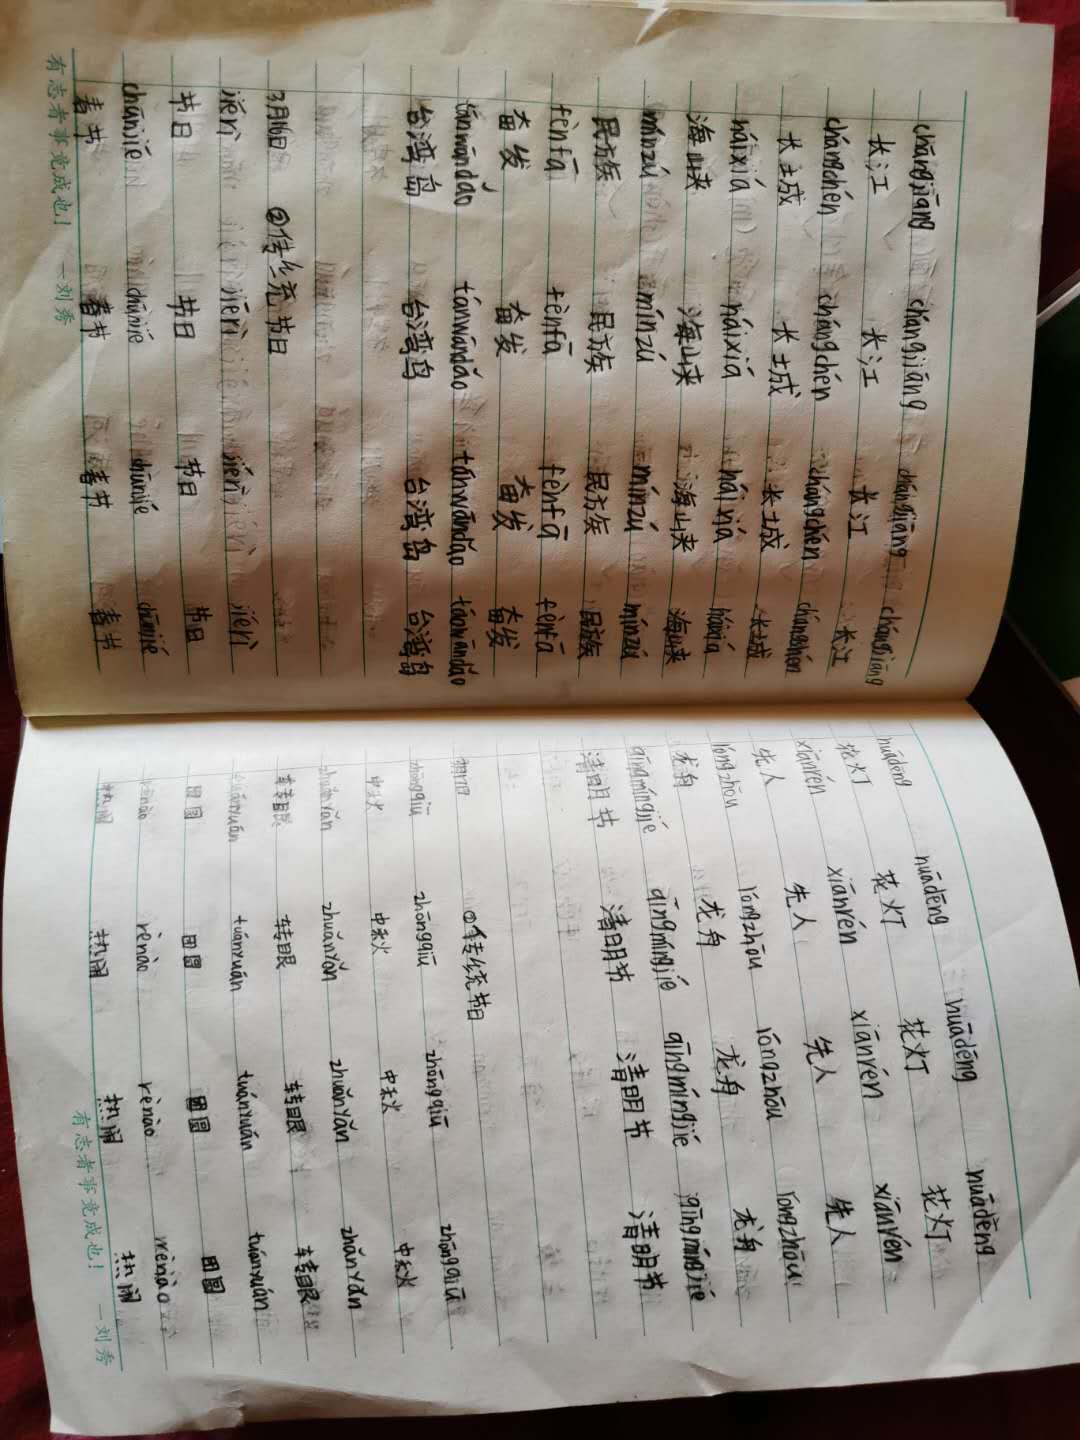 chángjiāng chángjiāng chángjiāng chángjiāng
长江 长江 长江 长江
chángchén chángchén chángchén chángchén
长城 长城 长城 长城
háixiá háixiá háixiá háixiá
海峡 海峡 海峡 海峡
mínzú mínzú mínzú mínzú
民族 民族 民族 民族
fènfā fènfā fènfā fènfā
奋发 奋发 奋发 奋发
tánwāndǎo tánwāndǎo tánwāndǎo táowāndǎo
台湾岛 台湾岛 台湾岛 台湾岛
3月16日 ②传统节日
jiérì jiérì jiérì jiérì
节日 节日 节日 节日
chūnjié chūnjié chūnjié chūnjié
春节 春节 春节 春节
有志者事竟成也! —刘秀
huādēng huādēng huādēng huādēng
花灯 花灯 花灯 花灯
xiānrén xiānrén xiānrén xiānrén
先人 先人 先人 先人
lóngzhōu lóngzhōu lóngzhōu lóngzhōu
龙舟 龙舟 龙舟 龙舟
qīngmíngjié qīngmíngjié qīngmíngjié qīngmíngjié
清明节 清明节 清明节 清明节
②传统节日
zhōngqiū zhōngqiū zhōngqiū zhōngqiū
中秋 中秋 中秋 中秋
zhuǎnyǎn zhuǎnyǎn zhuǎnyǎn zhǎnyǎn
转眼 转眼 转眼 转眼
tuányuán tuányuán tuányuán tuányuán
团圆 团圆 团圆 团圆
rènào rènào rènào rènào
热闹 热闹 热闹 热闹
有志者事竟成也! —刘秀